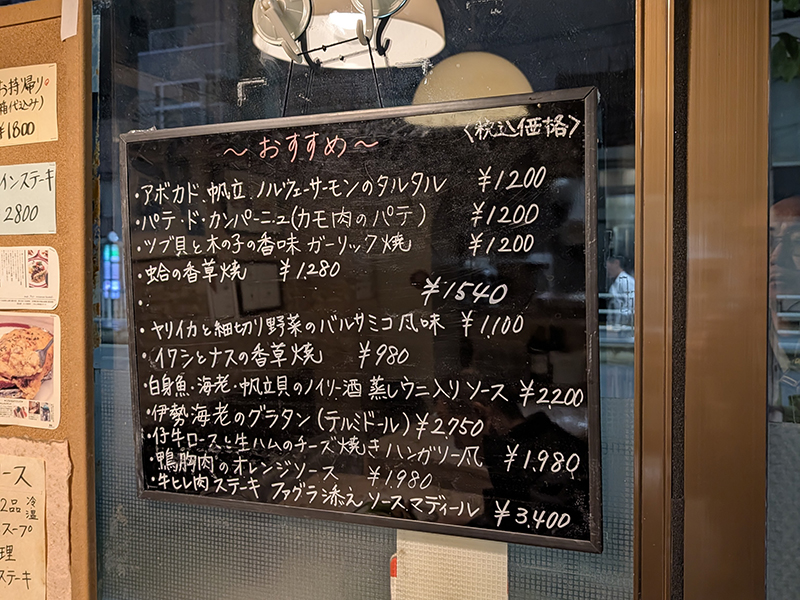 お持ち帰り
箱代込み)
¥1800
インステーキ
2800
～おすすめ～
<税込価格>
・アボカド、帆立、ノルウェーサーモンのタルタル ¥1200
・パテ・ド・カンパーニュ(カモ肉のパテ) ¥1200
・ツブ貝と木の子の香味ガーリック焼 ¥1200
・蛤の香草焼 ¥1.280
・ ¥1540
・ヤリイカと細切り野菜のバルサミコ風味 ¥1,100
・イワシとナスの香草焼 ¥980
・白身魚・海老・帆立貝のノイリー酒蒸しウニ入りソース ¥2,200
・伊勢海老のグラタン(テルミドール) ¥2,750
・仔牛ロースと生ハムのチーズ焼きハンガリー風 ¥1,980
・鴨胸肉のオレンジソース ¥1,980
・牛ヒレ肉ステーキ ファグラ添え ソースマディール ¥3,400
ース
2品 冷温
スープ
理
ステーキ